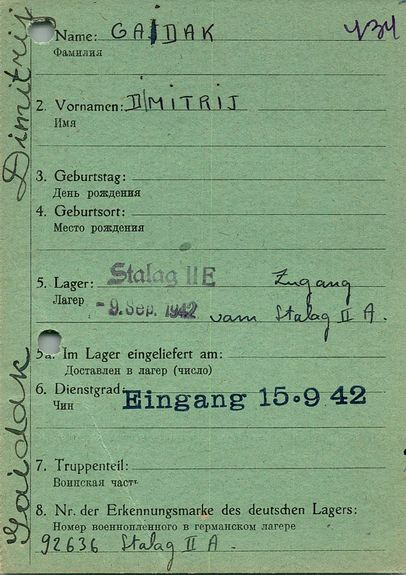 Name: GAIDAK
434
Фамилия
2. Vornamen: DIMITRIJ
Имя
3. Geburtstag:
День рождения
4. Geburtsort:
Место рождения
5. Lager: Stalag II E Zugang
Лагер - 9. Sep. 1942 vom Stalag II A.
5a. Im Lager eingeliefert am:
Доставлен в лагер (число)
6. Dienstgrad:
Чин Eingang 15.9 42
7. Truppenteil:
Воинская часть
8. Nr. der Erkennungsmarke des deutschen Lagers:
Номер военнопленного в германском лагере
92636 Stalag II A.
Gaidak Dimitrij